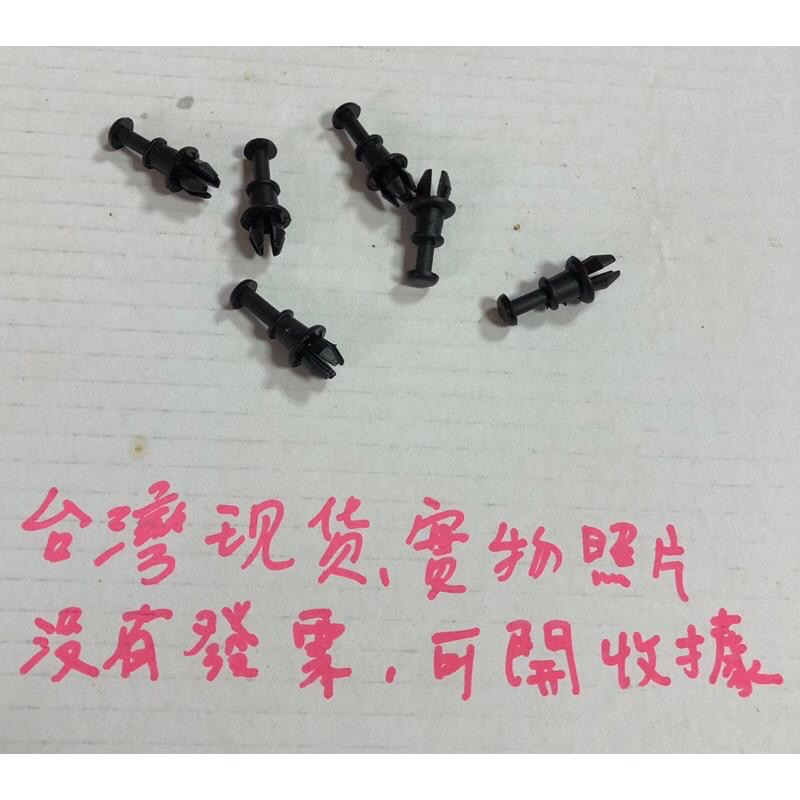 台灣现货,實物照片
没有發票,可開收據